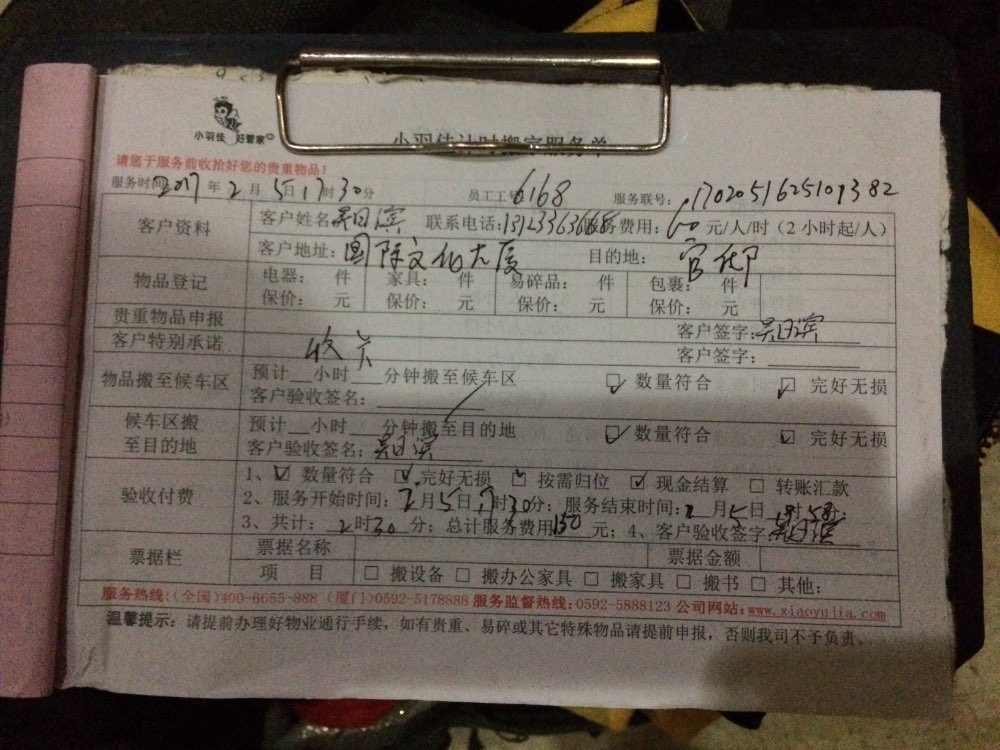 小羽佳 好管家
小羽佳计时搬家服务单
请您于服务前收拾好您的贵重物品!
服务时间 2017年2月5日17时30分 员工工号 6168 服务联号:
客户资料 客户姓名 联系电话: 服务费用:60元/人/时(2小时起/人)
客户地址:国际文化大厦 目的地:官邸
物品登记 电器: 件 家具: 件 易碎品: 件 包裹: 件
保价: 元 保价: 元 保价: 元 保价: 元
贵重物品申报 客户签字:
客户特别承诺 客户签字:
物品搬至候车区 预计__小时___分钟搬至候车区 ☑ 数量符合 ☑ 完好无损
客户验收签名:
候车区搬至目的地 预计__小时___分钟搬至目的地 ☑ 数量符合 ☑ 完好无损
客户验收签名:
验收付费 1、☑ 数量符合 ☑ 完好无损 ☑ 按需归位 ☑ 现金结算 □ 转账汇款
2、服务开始时间:2月5日17时30分;服务结束时间:2月5日
3、共计:2时30分;总计服务费用150元;4、客户验收签字
票据栏 票据名称 票据金额
项 目 □ 搬设备 □ 搬办公家具 □ 搬家具 □ 搬书 □ 其他:
服务热线:(全国)400-6655-888 (厦门)0592-5178888 服务监督热线:0592-5888123 公司网站:www.xiaoyujia.com
温馨提示: 请提前办理好物业通行手续,如有贵重、易碎或其它特殊物品请提前申报,否则我司不予负责。